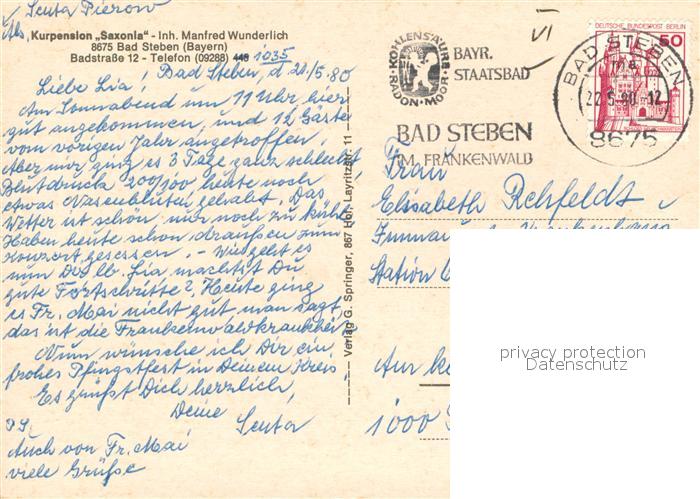 Senta Pierow
Kurpension „Saxonia" - Inh. Manfred Wunderlich
8675 Bad Steben (Bayern)
Badstraße 12 - Telefon (09288) 446 1035
Bad Steben, d. 21/5.80
Liebe Lia!
Am Sonnabend um 11 Uhr hier
gut angekommen, und 12 Gäste
vom vorigen Jahr angetroffen.
Aber mir ging es 3 Tage ganz schlecht
Blutdruck 200/100 heute noch
etwas Nasenbluten gehabt. Das
Wetter ist schön nur noch zu kühl.
Haben heute schon draußen zum
Konzert gesessen. - Wie geht es
nun Dir lb. Lia machtst Du
gute Fortschritte? Heute ging
es Fr. Mai nicht gut man sagt,
das ist die Frankenwaldkrankheit
Nun wünsche ich Dir ein
frohes Pfingstfest in Deinem Kreis
Es grüßt Dich herzlich,
Deine
Senta
Auch von Fr. Mai
viele Grüße
Verlag G. Springer, 867 Hof, Layritzstr. 11
VI
KOHLENSÄURE
RADON·MOOR
BAYR.
STAATSBAD
BAD STEBEN
IM FRANKENWALD
DEUTSCHE BUNDESPOST BERLIN
50
BAD STEBEN
ma
22.5.80.-12
8675
Frau
Elisabeth Rehfeldt
Station
1000
privacy protection
Datenschutz